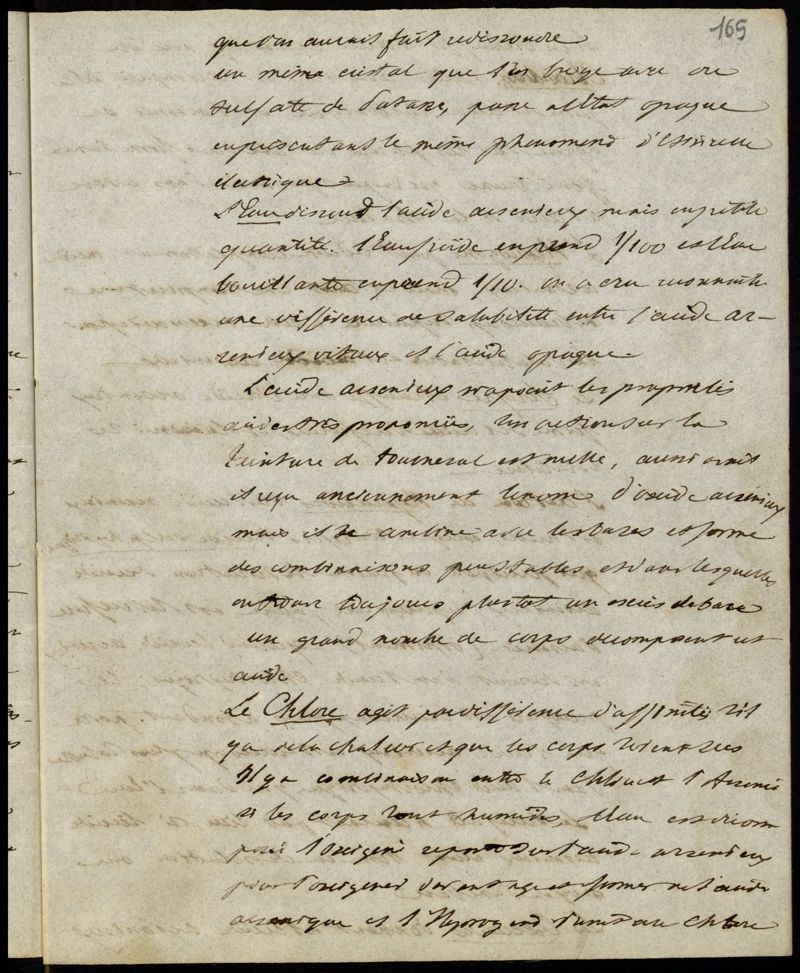 165
que l'on aurait fait redissoudre
un même cristal que l'on broye avec du
sulfate de Potasse, passe à l'état opaque
en présentant le même phenomene d'étincelle
électrique
L'Eau dissoud l'acide arsenieux mais en petite
quantité. l'Eau froide en prend 1/100 et l'Eau
bouillante en prend 1/10. on a cru reconnaitre
une différence de solubilité entre l'acide ar-
senieux vitreux et l'acide opaque.
L'acide arsenieux ne possède les propriétés
acides très prononcées, son action sur la
teinture de tournesol est nulle, aussi avait
il reçu anciennement le nom d'oxide arsénieux
mais il se combine avec les bases et forme
des combinaisons peu stables et dans lesquelles
entre toujours plustot un excès de base
un grand nombre de corps decomposent cet
acide
Le Chlore agit par différence d'affinités s'il
y a de la chaleur et que les corps soient secs
Il y a combinaison entre le Chlore et l'Arsenic
si les corps sont humides, l'eau est décom
posée l'oxigène se porte sur l'acide arsenieux
pour l'oxigener davantage et former de l'acide
arsenique et l'Hydrogene s'unit au Chlore